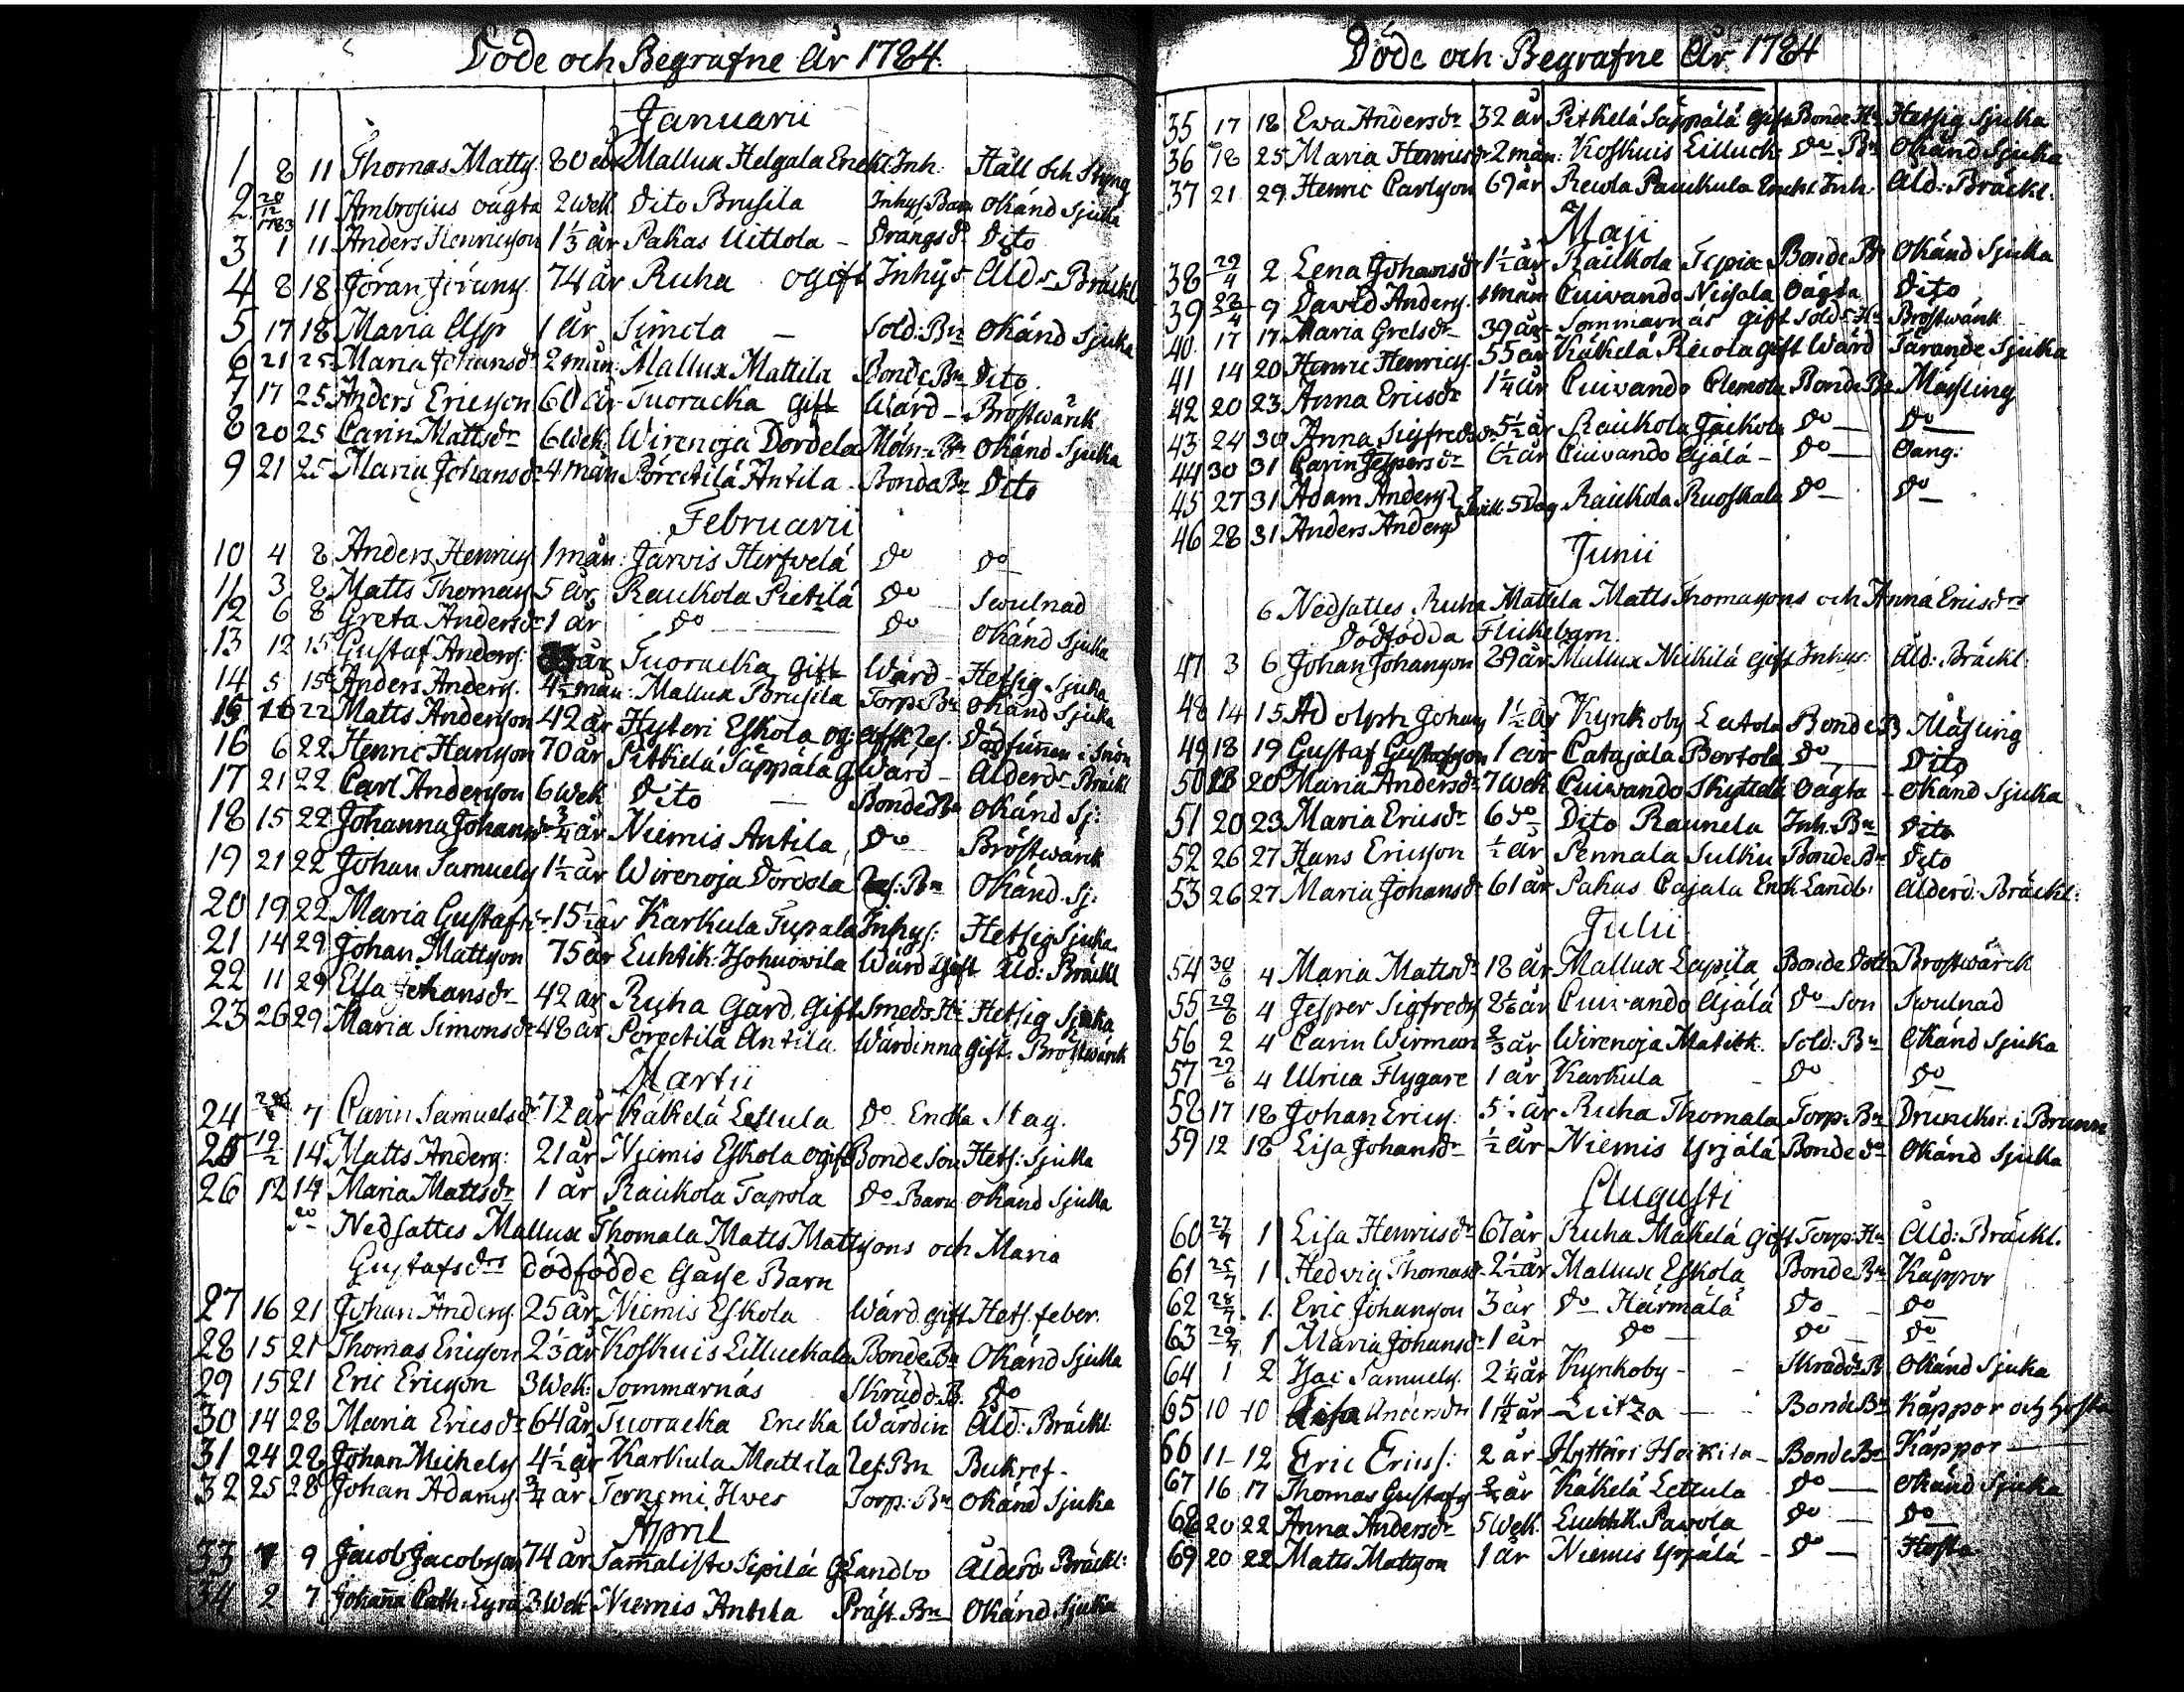 Döde och Begrafne År 1784.
Januarii
1 8 11 Thomas Matts. 80 år Mallux Helgala Enckl. Inh. Håll och Styng
2 20/12 1783 11 Ambrosius oägta 2 wek Dito Brusila Inhys. Barn Okänd Sjuka
3 1 11 Anders Henricsson 1 1/3 år Pakas Uittola - Drängs do Dito
4 8 18 Jöran Jörans. 74 år Ruha ogift Inhys Åld. Bräckl
5 17 18 Maria Asp 1 år Simola - Sold: Bn Okänd Sjuka
6 21 25 Maria Johansdr 2 mån: Mallux Mattila Bonde Bn Dito.
7 17 25 Anders Ericsson 60 år Tuoracka gift Wärd - Bröstwärck
8 20 25 Carin Mattsdr 6 Wek. Wirenoja Dordola Möln. Bn Okänd Sjuka
9 21 25 Maria Johansdr 4 mån Porcctilä Antila Bonde Bn Dito
Februarii
10 4 8 Anders Henrics. 1 mån: Jarvis Hirfvelä do do
11 3 8 Matts Thomass. 5 år Raukola Pietilä do Swulnad
12 6 8 Greta Andersdr 1 år do do Okänd Sjuka
13 12 15 Gustaf Anders. år Tuoracka gift Wärd - Hetsig Sjuka
14 5 15 Anders Anders. 4 1/2 mån: Mallux Brusila Torp. Bn Okänd Sjuka
15 16 22 Matts Andersson 42 år Hyteri Eskola og: Dödfunnen i Snön
16 6 22 Henric Hansson 70 år Pitkelä Säppälä g Wärd - Ålderd. Bräckl
17 21 22 Carl Andersson 6 Wek Dito - Bonde Bn Okänd Sj:
18 15 22 Johanna Johansdr 3/4 år Niemis Antila do Bröstwärck
19 21 22 Johan Samuels. 1 1/2 år Wirenoja Dördola Bn Okänd Sj:
20 19 22 Maria Gustafsdr 15 1/2 år Karkula Tupala Inhys: Hetsig Sjuka.
21 14 29 Johan Mattson 75 år Luhtik: Isohuowila Wärd gift Åld: Bräckl
22 11 29 Elsa Johansdr 42 år Ruha Gård Gift Smeds Hu Hetsig Sjuka
23 26 29 Maria Simonsdr 48 år Porcctilä Antila. Wärdinna gift. Bröstwärck
Martii
24 7 Carin Samuelsdr 72 år Käkelä Lettula do Encka Stag.
25 19/2 14 Matts Anders: 21 år Niemis Eskola ogift Bonde Son Hets: Sjuka
26 12 14 Maria Mattsdr 1 år Raukola Tapola do Barn Okänd Sjuka
do Nedsattes Mallux Thomala Matts Mattsons och Maria
Gustafsdrs dödfödde Gåsse Barn
27 16 21 Johan Anders. 25 år Niemis Eskola Wärd gift Hets. feber.
28 15 21 Thomas Ericson 2 1/3 år Koskuis Lilluckala Bonde Bn Okänd Sjuka
29 15 21 Eric Ericson 3 Wek: Sommarnäs Skrädd. B. do
30 14 28 Maria Ericsdr 64 år Tuoracka Encka Wärdin Åld: Bräckl:
31 24 28 Johan Michels. 4 1/2 år Karkula Mattila Bn Bukref.
32 25 28 Johan Adams. 3/4 år Ternemi Hwes Torp: Bn Okänd Sjuka
April
33 7 9 Jacob Jacobsson 74 år Tamalisto Sipilä G Landbo Ålderd. Bräckl:
34 2 7 Johanna Cath: Lyra 3 Wek Niemis Antila Präst. Bn Okänd Sjuka
Döde och Begrafne År 1784
35 17 18 Ewa Andersdr 32 år Pitkelä Säppälä gift Bonde Hu Hetsig Sjuka
36 18 25 Maria Henricsdr 2 mån: Koskuis Lilluck: do Bn Okänd Sjuka
37 21 29 Henric Carlson 69 år Recola Pauckula Enckl. Inh. Åld: Bräckl:
Maji
38 29/4 2 Lena Johansdr 1 1/2 år Raukola Sepia Bonde Bn Okänd Sjuka
39 28/4 9 David Anders. 1 mån Cuivando Nigola Oägta Dito
40 17 17 Maria Grelsdr 39 år Sommarnäs gift Sold: Hu Bröstwärck
41 14 20 Henric Henrics. 55 år Käkelä Recola gift Wärd Tärande Sjuka
42 20 23 Anna Ericsdr 1 1/4 år Cuivando Clemola Bonde Bn Mässling
43 24 30 Anna Sigfredsdr 5 1/2 år Raukola Jackola do do
44 30 31 Carin Jespersdr 6 1/2 år Cuivando Äjälä - do - Oang:
45 27 31 Adam Anders. Twill. 5 Dag Raukola Ruoskala do do
46 28 31 Anders Anders.
Junii
6 Nedsattes Ruha Mattila Matts Thomassons och Anna Ericsdrs
Dödfödda Flickebarn.
47 3 6 Johan Johanson 29 år Mallux Nickilä Gift Inhys: Åld: Bräckl:
48 14 15 Adolph Johans 1 1/2 år Kyrkoby Lutola Bonde B Mäsling
49 18 19 Gustaf Gustafsson 1 år Catajala Bertola do Dito
50 18 20 Maria Andersdr 7 Wek Cuivando Skyttelä Oägta - Okänd Sjuka
51 20 23 Maria Ericsdr 6 do Dito Raunela Inh: Bn Dito
52 26 27 Hans Ericsson 1/2 år Pennala Sulku Bonde Bn Dito
53 26 27 Maria Johansdr 61 år Pakas Cajala Enck Landb: Ålderd: Bräckl:
Julii
54 30/6 4 Maria Mattsdr 18 år Mallux Lapila Bonde Dott. Bröstwärck
55 29/6 4 Jesper Sigfreds 2 1/6 år Cuivando Äjälä do Son Swulnad
56 2 4 Carin Wirman 2/3 år Wirenoja Matitt. Sold: Bn Okänd Sjuka
57 29/6 4 Ulrica Flygare 1 år Karkula - do do
58 17 18 Johan Erics. 5 1/2 år Ruha Thomala Torp: Bn Druncknt i Brunn
59 12 18 Lisa Johansdr 1/2 år Niemis Yrjälä Bonde do Okänd Sjuka
Augusti
60 27/7 1 Lisa Henricsdr 67 år Ruha Mäkelä gift Torp: Hu Åld: Bräckl.
61 25/7 1 Hedvig Thomasdr 2 1/2 år Mallux Eskola Bonde Bn Kåppor
62 28/7 1 Eric Johanson 3 år do Härmälä do do
63 29/7 1 Maria Johansdr 1 år do do do
64 1 2 Isac Samuels. 2 1/4 år Kyrkoby - - Skräddr B Okänd Sjuka
65 10 10 Lisa Andersdr 1 1/2 år Leitza Bonde Bn Kåppor och hosta
66 11 12 Eric Erics: 2 år Hyttäri Heikila - Bonde Bn Kåppor
67 16 17 Thomas Gustafs 3/4 år Käkelä Lettula do Okänd Sjuka
68 20 22 Anna Andersdr 5 Wek. Luhtik. Pavola do do
69 20 22 Matts Mattson 1 år Niemis Yrjälä - do Hosta